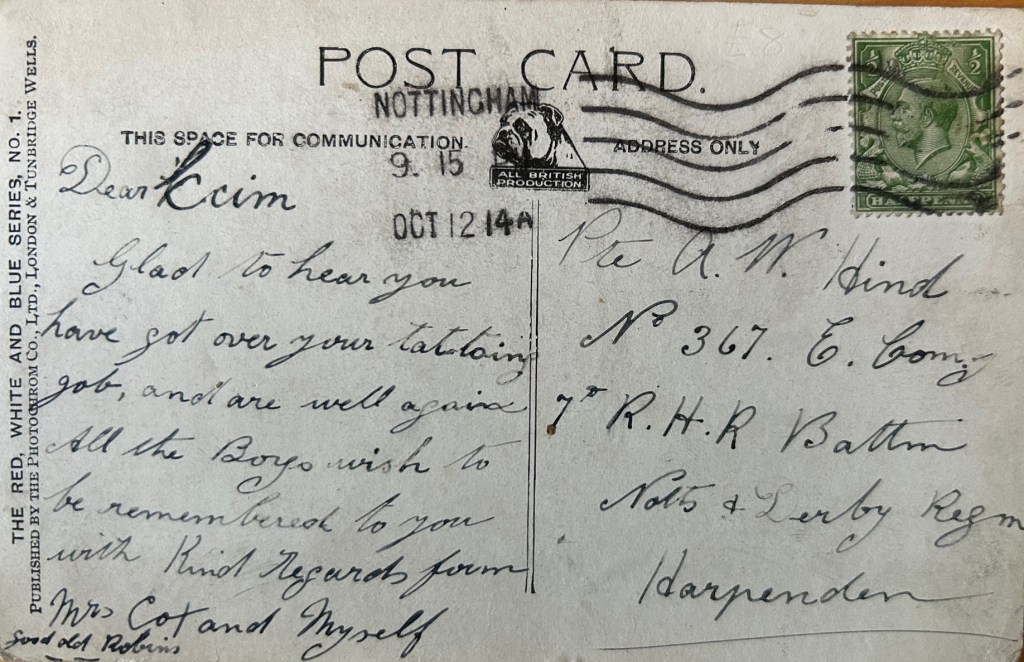 POST CARD.
NOTTINGHAM
9. 15
OCT 12 14A
THIS SPACE FOR COMMUNICATION.
ADDRESS ONLY
ALL BRITISH
PRODUCTION
1/2
1/2
HALFPENNY
THE RED, WHITE AND BLUE SERIES, NO. 1.
PUBLISHED BY THE PHOTOCHROM CO., LTD., LONDON & TUNBRIDGE WELLS.
Dear
Glad to hear you
have got over your tattoing
job, and are well again
All the Boys wish to
be remembered to you
with Kind Regards form
Mrs Cox and Myself
Good old Robins
Pte A. W. Hind
No 367. E. Comy
7th R.H.R Battn
Notts & Derby Regm
Harpenden